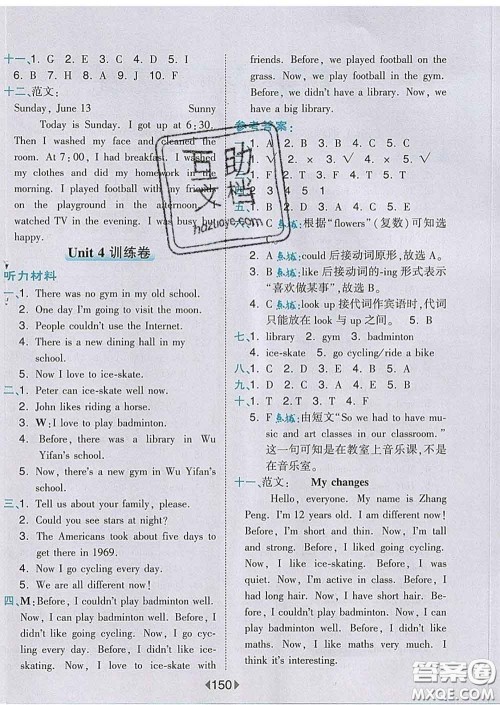 十一、1. G  2. E  3. C  4. D  5. I
6. B  7. H  8. J  9. A  10. F
十二、范文:
Sunday, June 13  Sunny
Today is Sunday. I got up at 6:30.
Then I washed my face and cleaned the
room. At 7:00, I had breakfast. I washed
my clothes and did my homework in the
morning. I played football with my friends
on the playground in the afternoon. I
watched TV in the evening. I was busy but
happy.
Unit 4 训练卷
听力材料
一、1. There was no gym in my old school.
2. One day I'm going to visit the moon.
3. People couldn't use the Internet.
4. There is a new dining hall in my
school.
5. Now I love to ice-skate.
二、1. Peter can ice-skate well now.
2. John likes riding a horse.
3. M: I love to play badminton.
4. Before, there was a library in Wu
Yifan's school.
5. Now, there's a new gym in Wu Yifan's
school.
三、1. Tell us about your family, please.
2. Could you see stars at night?
3. The Americans took about five days
to get there in 1969.
4. Now I go cycling every day.
5. We are all different now!
四、M: Before, I couldn't play badminton well.
Now, I can play badminton well. Before, I
didn't like cycling. Now, I go cyc-
ling every day. Before, I didn't like ice-
skating. Now, I love to ice-skate with
friends. Before, we played football on the
grass. Now, we play football in the gym.
Before, we didn't have a library. Now, we
have a big library.
参考答案:
一、1. A  2. B  3. B  4. A  5. B
二、1. √  2. ×  3. √  4. √  5. ×
三、
四、
五、
六、1. C 点拨:根据“flowers”(复数)可知选
C。
2. A 点拨:could 后接动词原形,故选 A。
3. B 点拨:like 后接动词的-ing 形式表示
“喜欢做某事”,故选 B。
4. C 点拨:look up 接代词作宾语时,代词
只能放在 look 与 up 之间。  5. B
七、1. library  2. gym  3. badminton
4. ice-skate  5. go cycling/ride a bike
八、1. C  2. A  3. D  4. E  5. B
九、1. D  2. C  3. B  4. E  5. A
十、1. T  2. T  3. F  4. T
5. F 点拨:由短文“So we had to have mu-
sic and art classes in our classroom.”
这一句可知是在教室上音乐课,不是
在音乐室。
十一、范文:  My changes
Hello, everyone. My name is Zhang
Peng. I'm 12 years old. I am different now.
Before, I'm short and thin. Now, I'm tall
and strong. Before, I didn't like going
cycling. Now, I like going cycling. Before, I was
quiet. Now, I'm active in class. Before, I
had long hair. Now, I have short hair. Before, I
played badminton. Now, I like
playing football. Before, I didn't like
maths. Now, I like maths very much. I
think it's interesting.
150
互助
文档
hdzuoye.com
答案圈
MXQE.COM